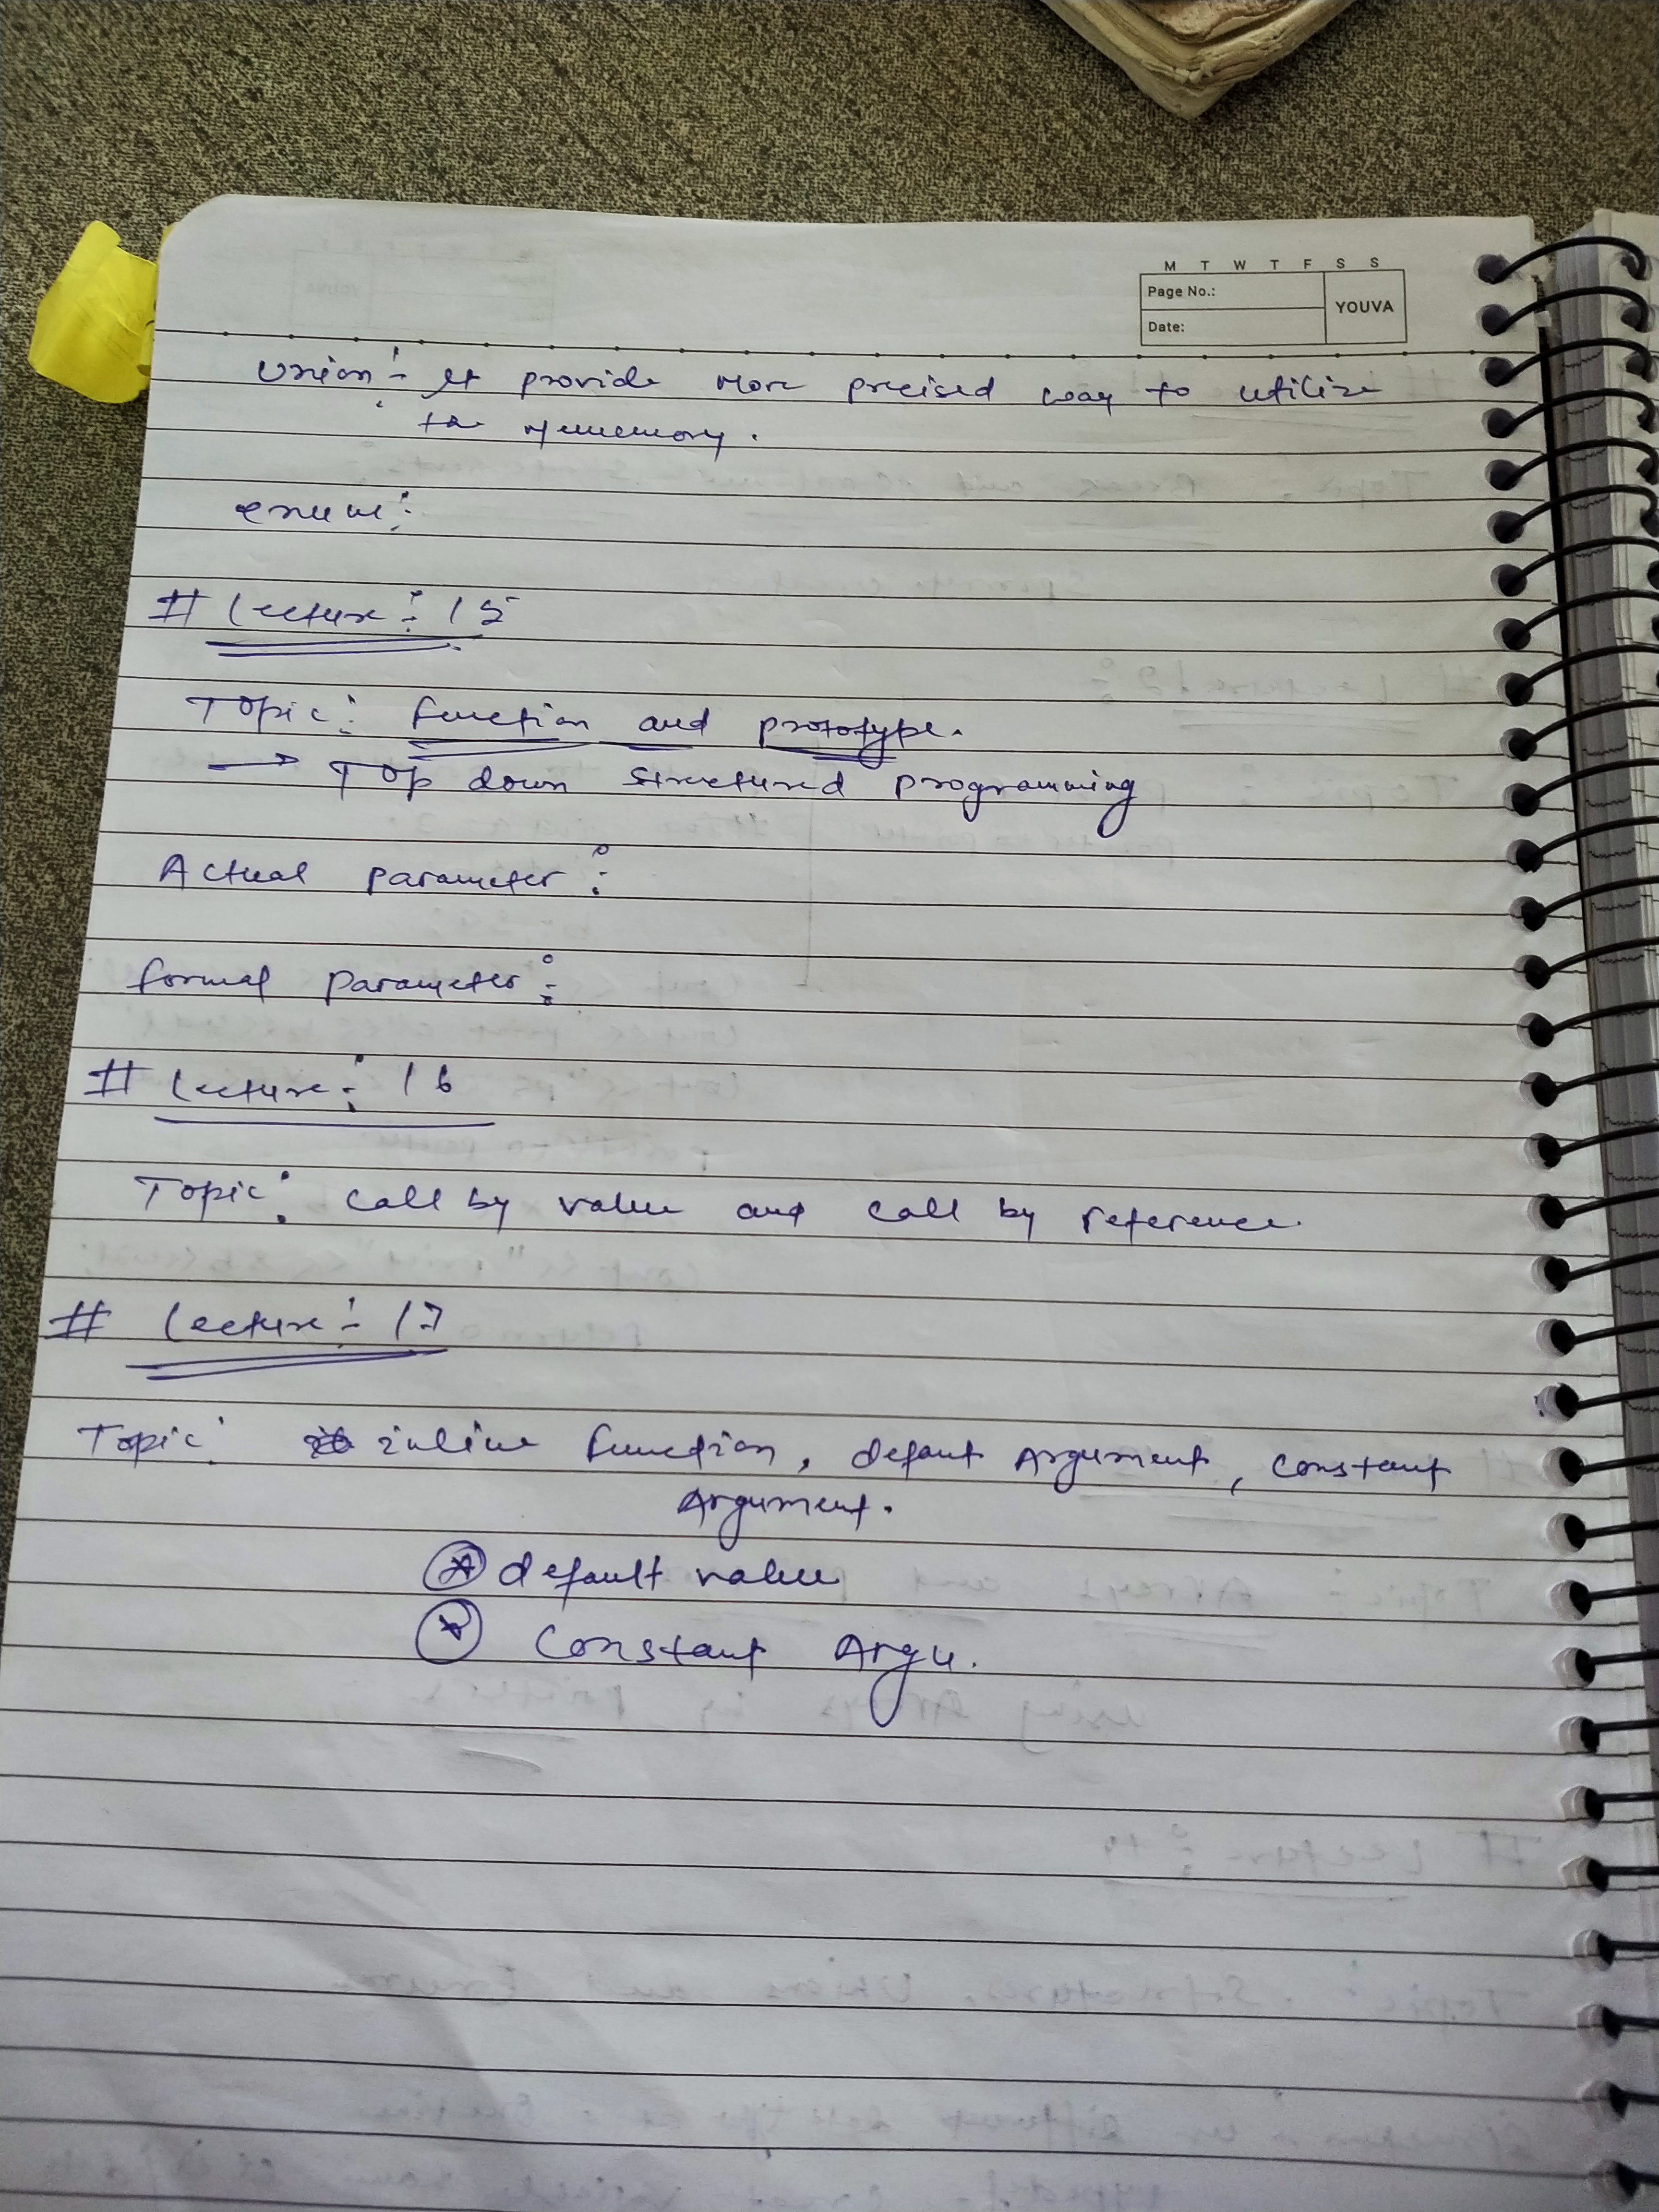 M T W T F S S
Page No.:
YOUVA
Date:
Union :- It provide more precised way to utilize
the memory.
enum :-
# Lecture :- 15
Topic : function and prototype.
→ Top down structured programming
Actual parameter :-
formal parameter :-
# Lecture :- 16
Topic : call by value and call by reference.
# Lecture :- 17
Topic : inline function, defaut Argument, constant
Argument.
default value
Constant Argu.